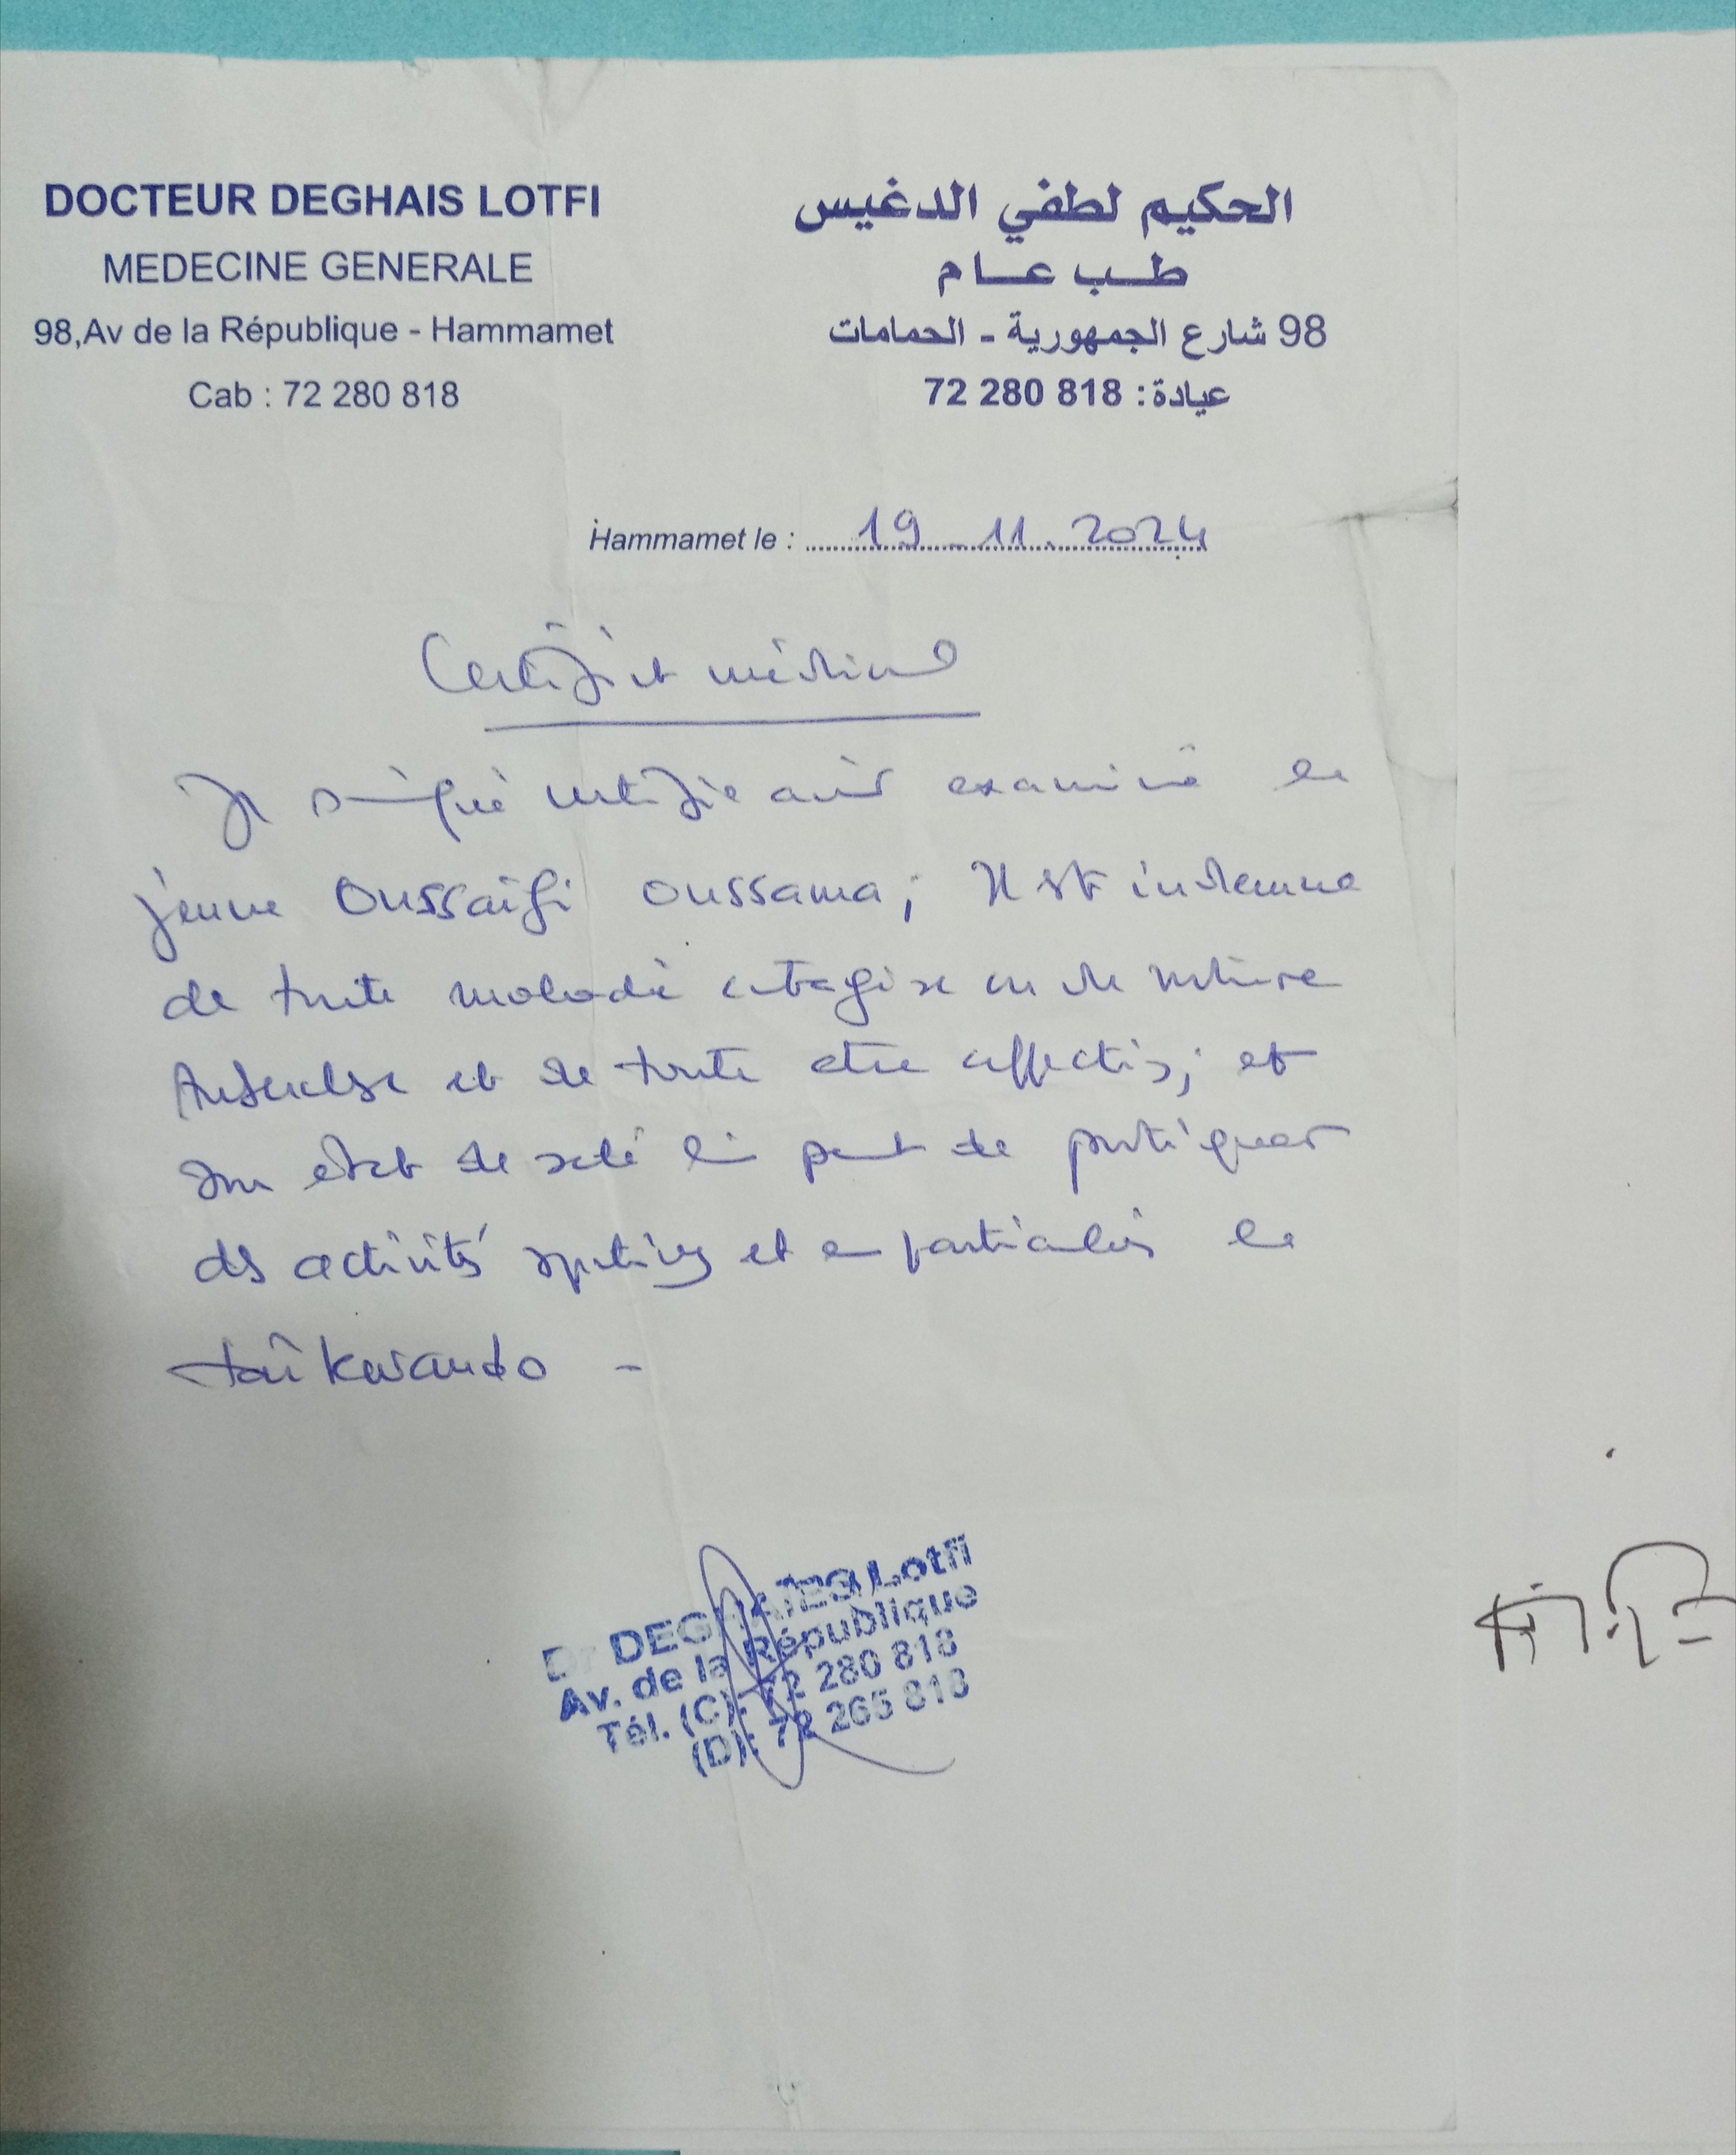 DOCTEUR DEGHAIS LOTFI
MEDECINE GENERALE
98,Av de la République - Hammamet
Cab : 72 280 818
الحكيم لطفي الدغيس
طب عام
98 شارع الجمهورية - الحمامات
عيادة: 818 280 72
Hammamet le : 19-11.2024
Certificat médical
Je soussigné certifie avoir examiné le
jeune Oussaifi Oussama; Il est indemne
de toute maladie contagieuse ou de nature
tuberculeuse et de toute autre affection; et
son état de santé lui permet de pratiquer
des activités sportives et en particulier le
taîkwando -
Dr DEGHAIES Lotfi
Av. de la République
Tél. (C): 72 280 818
(D): 72 265 818